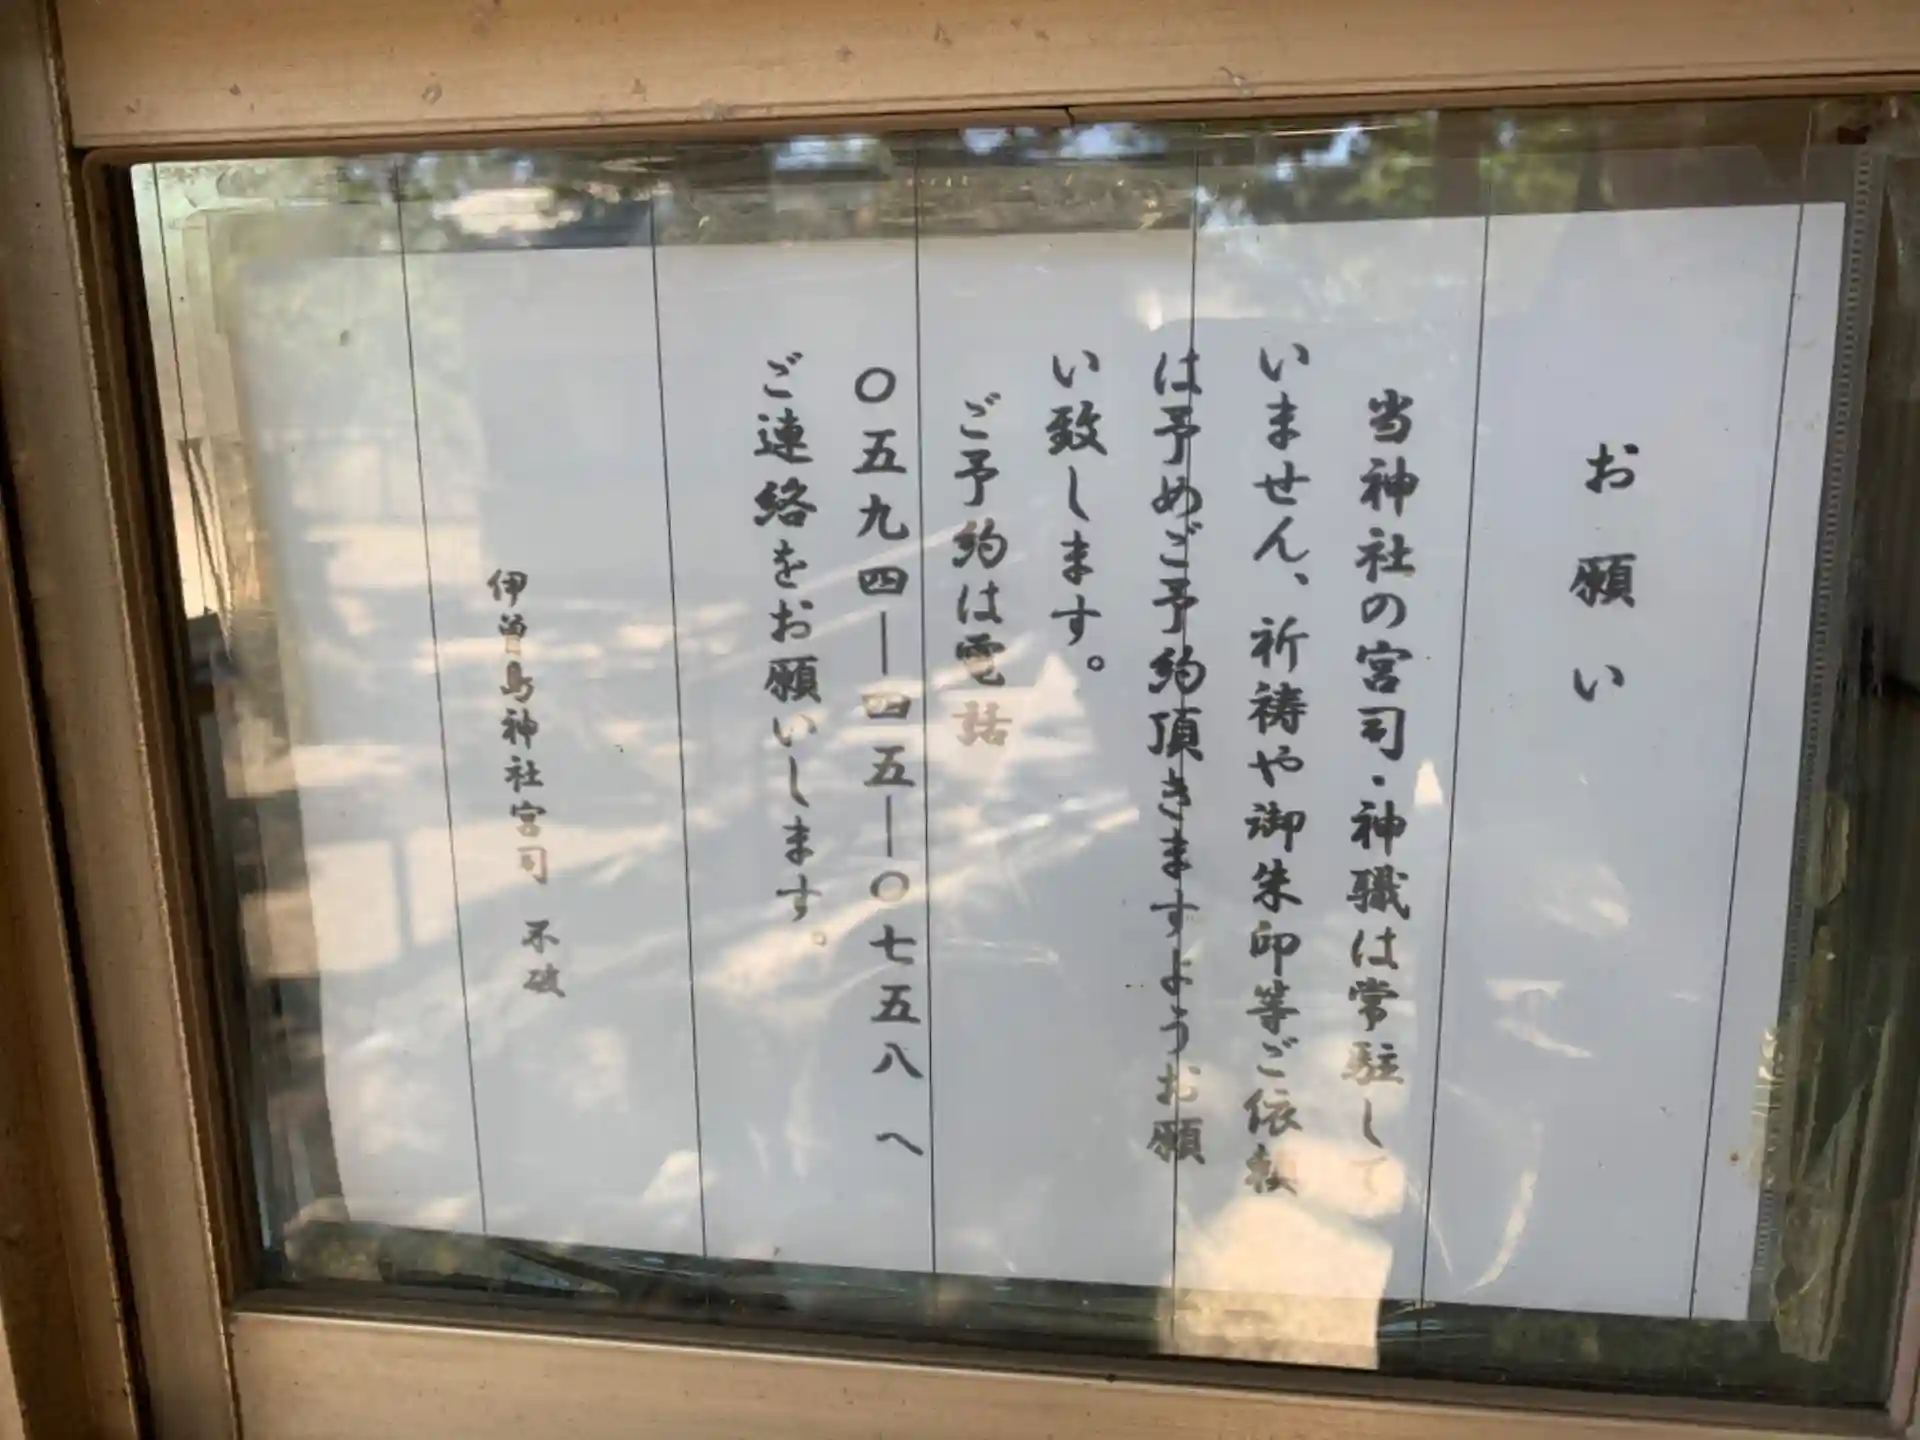 お願い
当神社の宮司・神職は常駐して
いません、祈祷や御朱印等ご依頼
は予めご予約頂きますようお願
い致します。
ご予約は電話
〇五九四―四五―〇七五八へ
ご連絡をお願いします。
伊曽島神社宮司 不破